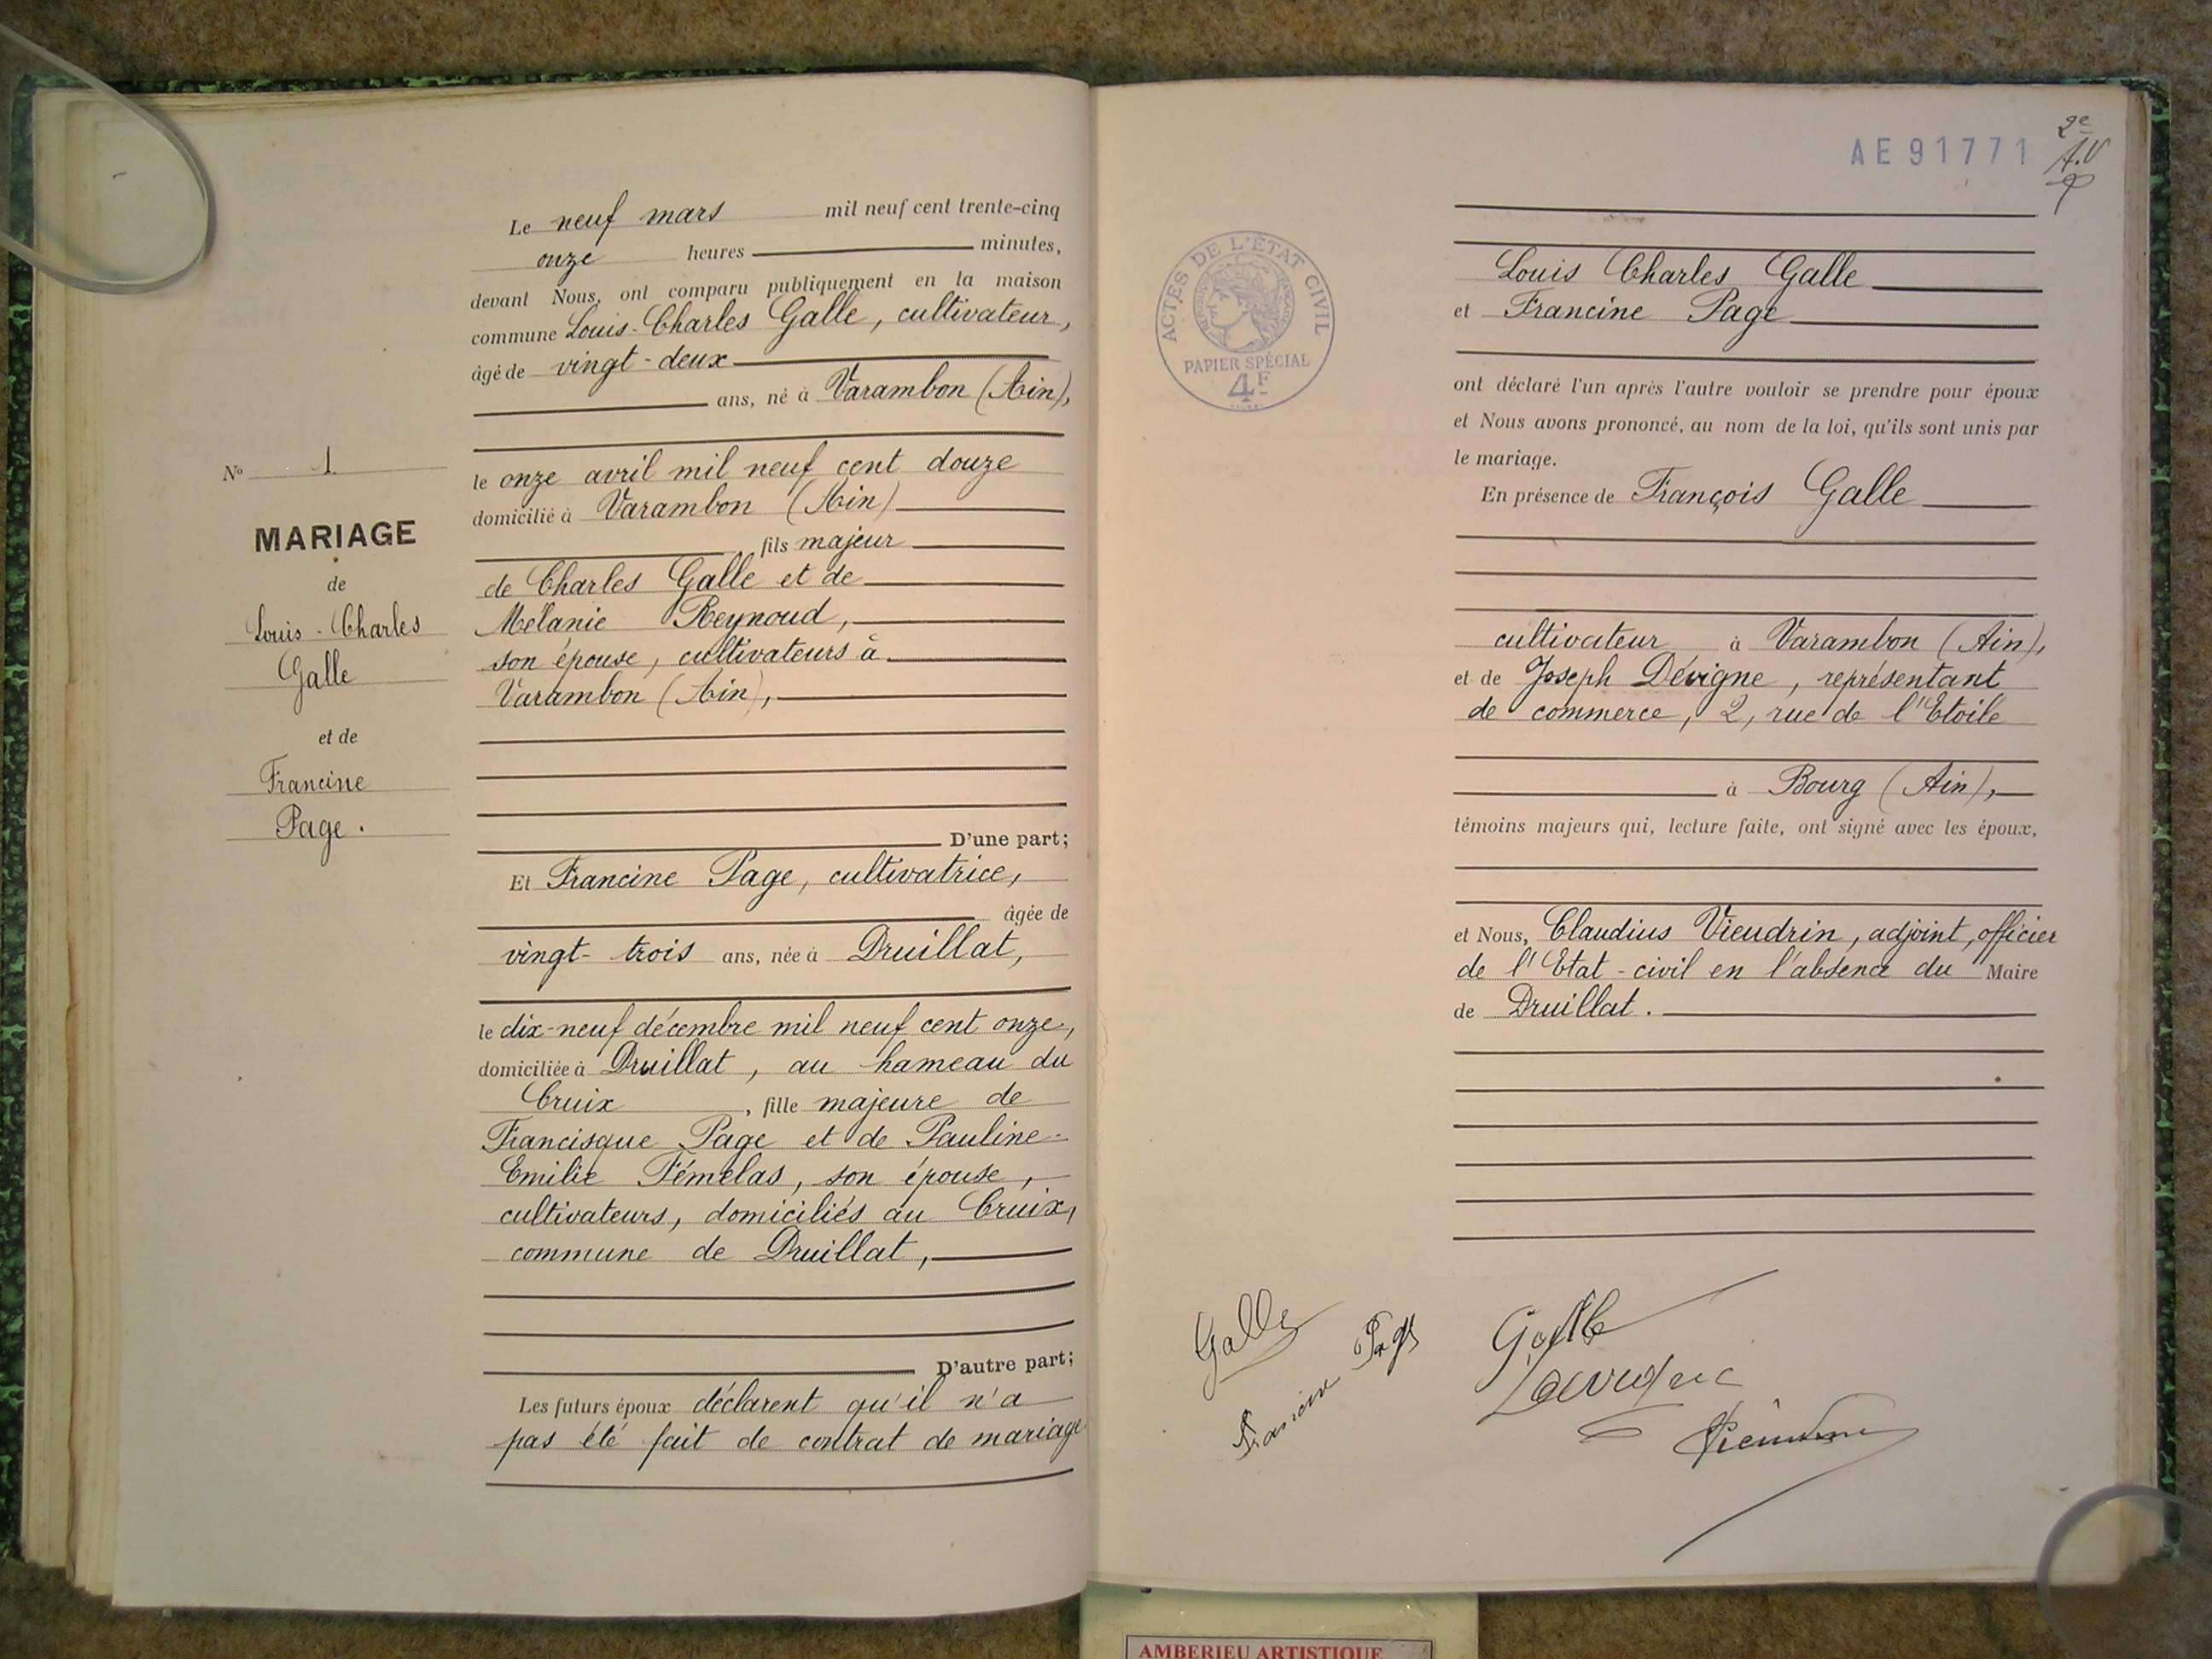 Le neuf mars mil neuf cent trente-cinq
onze heures minutes,
devant Nous, ont comparu publiquement en la maison
commune Louis-Charles Galle, cultivateur,
âgé de vingt-deux
ans, né à Varambon (Ain),
le onze avril mil neuf cent douze
domicilié à Varambon (Ain)
fils majeur
de Charles Galle et de
Mélanie Reynoud,
son épouse, cultivateurs à
Varambon (Ain),
D'une part;
Et Francine Page, cultivatrice,
âgée de
vingt-trois ans, née à Druillat,
le dix-neuf décembre mil neuf cent onze,
domiciliée à Druillat, au hameau du
Cruix, fille majeure de
Francisque Page et de Pauline-
Emilie Fémelas, son épouse,
cultivateurs, domiciliés au Cruix,
commune de Druillat,
D'autre part;
Les futurs époux déclarent qu'il n'a
pas été fait de contrat de mariage
No 1
MARIAGE
de
Louis-Charles
Galle
et de
Francine
Page.
AE91771
2e
ACTES DE L'ÉTAT CIVIL
PAPIER SPÉCIAL
4F
Louis Charles Galle
et Francine Page
ont déclaré l'un après l'autre vouloir se prendre pour époux
et Nous avons prononcé, au nom de la loi, qu'ils sont unis par
le mariage.
En présence de François Galle
cultivateur à Varambon (Ain),
et de Joseph Dévigne, représentant
de commerce, 2, rue de l'Etoile
à Bourg (Ain),
témoins majeurs qui, lecture faite, ont signé avec les époux,
et Nous, Claudius Vieudrin, adjoint, officier
de l'Etat-civil en l'absence du Maire
de Druillat.
Galle
Francine Page
Galle
AMBERIEU ARTISTIQUE